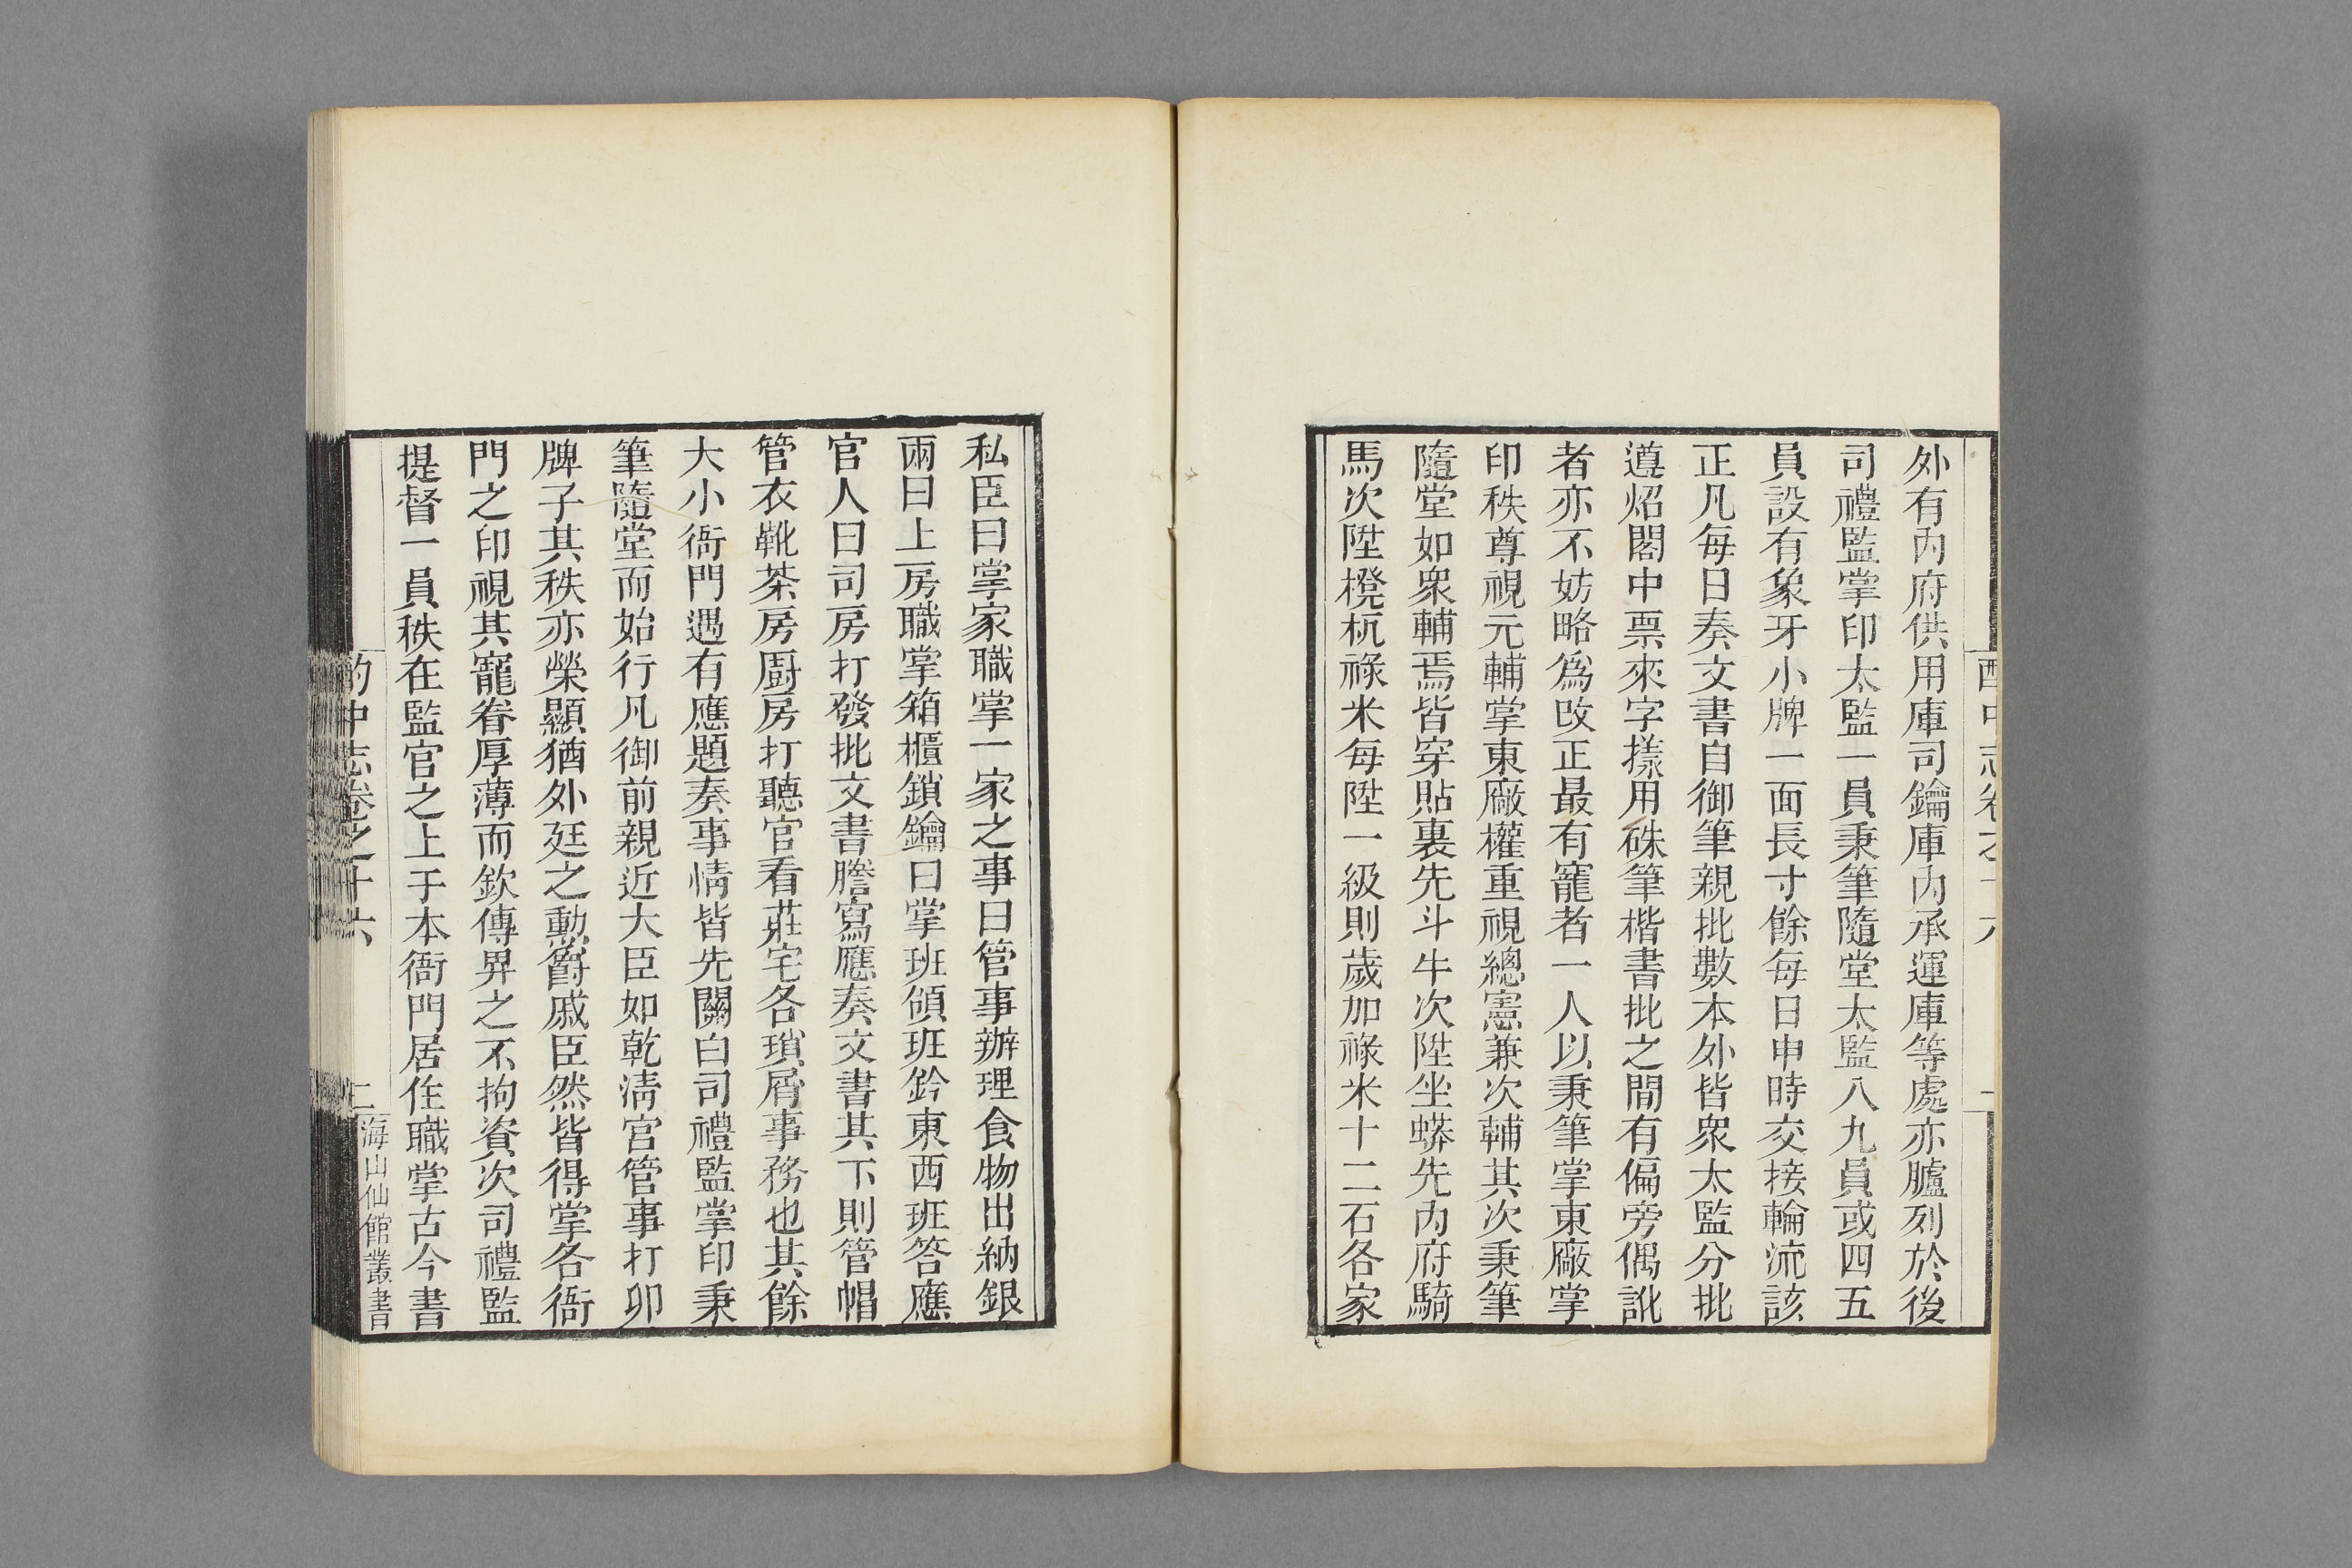 外有内府供用庫司鑰庫内承運庫等處亦臚列於後
司禮監掌印太監一員秉筆隨堂太監八九員或四五
員設有象牙小牌一面長寸餘每日申時交接輪流該
正凡每日奏文書自御筆親批數本外皆衆太監分批
遵炤閣中票來字㨾用硃筆楷書批之間有偏旁偶訛
者亦不妨略爲改正最有寵者一人以秉筆掌東廠掌
印秩尊視元輔掌東廠權重視總憲兼次輔其次秉筆
隨堂如衆輔焉皆穿貼裏先斗牛次陞坐蟒先内府騎
馬次陞櫈杌祿米每陞一級則歲加祿米十二石各家
私臣曰掌家職掌一家之事曰管事辦理食物出納銀
兩曰上房職掌箱櫃鎖鑰曰掌班領班鈐東西班答應
官人曰司房打發批文書謄寫應奏文書其下則管帽
管衣靴茶房厨房打聽官看莊宅各瑣屑事務也其餘
大小衙門遇有應題奏事情皆先關白司禮監掌印秉
筆隨堂而始行凡御前親近大臣如乾清宫管事打卯
牌子其秩亦榮顯猶外廷之勳爵戚臣然皆得掌各衙
門之印視其寵眷厚薄而欽傳畀之不拘資次司禮監
提督一員秩在監官之上于本衙門居住職掌古今書
酌中志卷之十六
二
海山仙館叢書